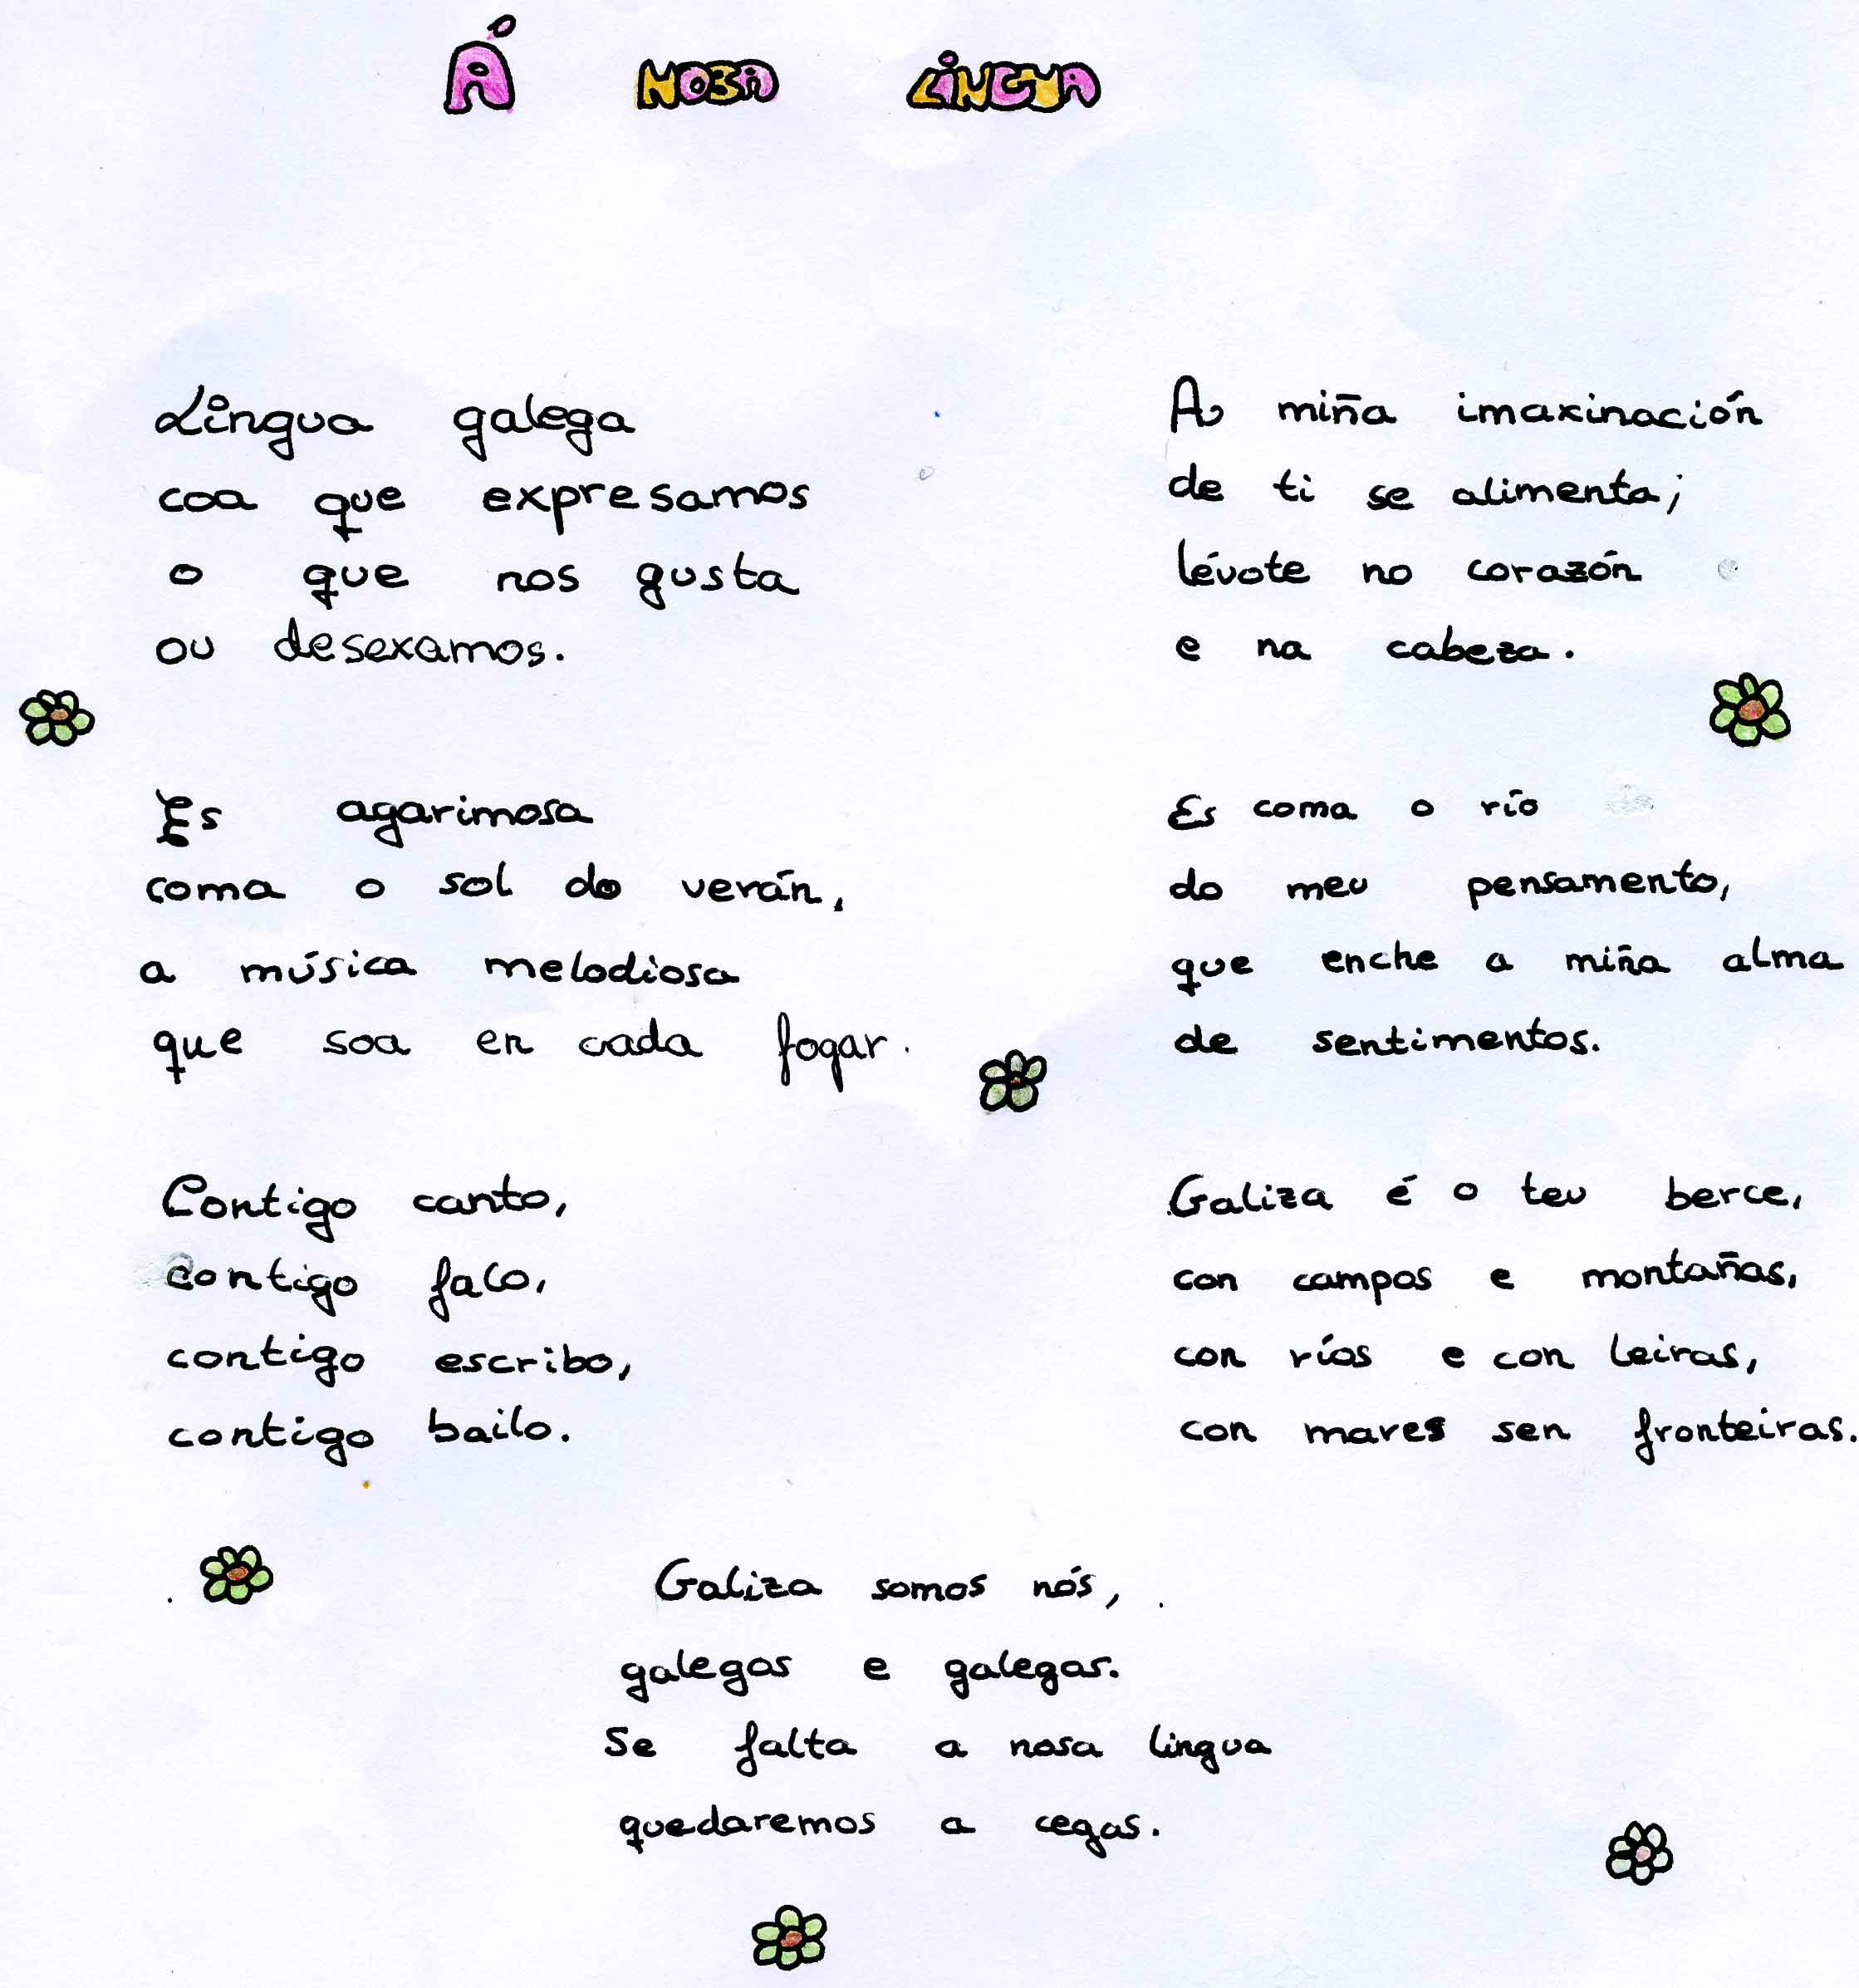 Á NOSA LINGUA
Lingua galega
coa que expresamos
o que nos gusta
ou desexamos.
Es agarimosa
coma o sol do verán,
a música melodiosa
que soa en cada fogar.
Contigo canto,
contigo falo,
contigo escribo,
contigo bailo.
A miña imaxinación
de ti se alimenta;
lévote no corazón
e na cabeza.
Es coma o río
do meu pensamento,
que enche a miña alma
de sentimentos.
Galiza é o teu berce,
con campos e montañas,
con ríos e con leiras,
con mares sen fronteiras.
Galiza somos nós,
galegos e galegas.
Se falta a nosa lingua
quedaremos a cegas.